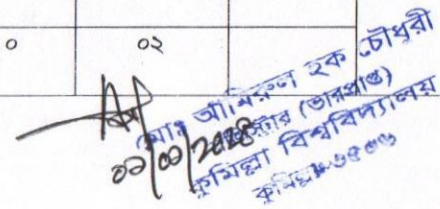 ০ ০২
মোঃ আমিরুল হক চৌধুরী
রেজিস্ট্রার (ভারপ্রাপ্ত)
কুমিল্লা বিশ্ববিদ্যালয়
কুমিল্লা-৩৫০৬